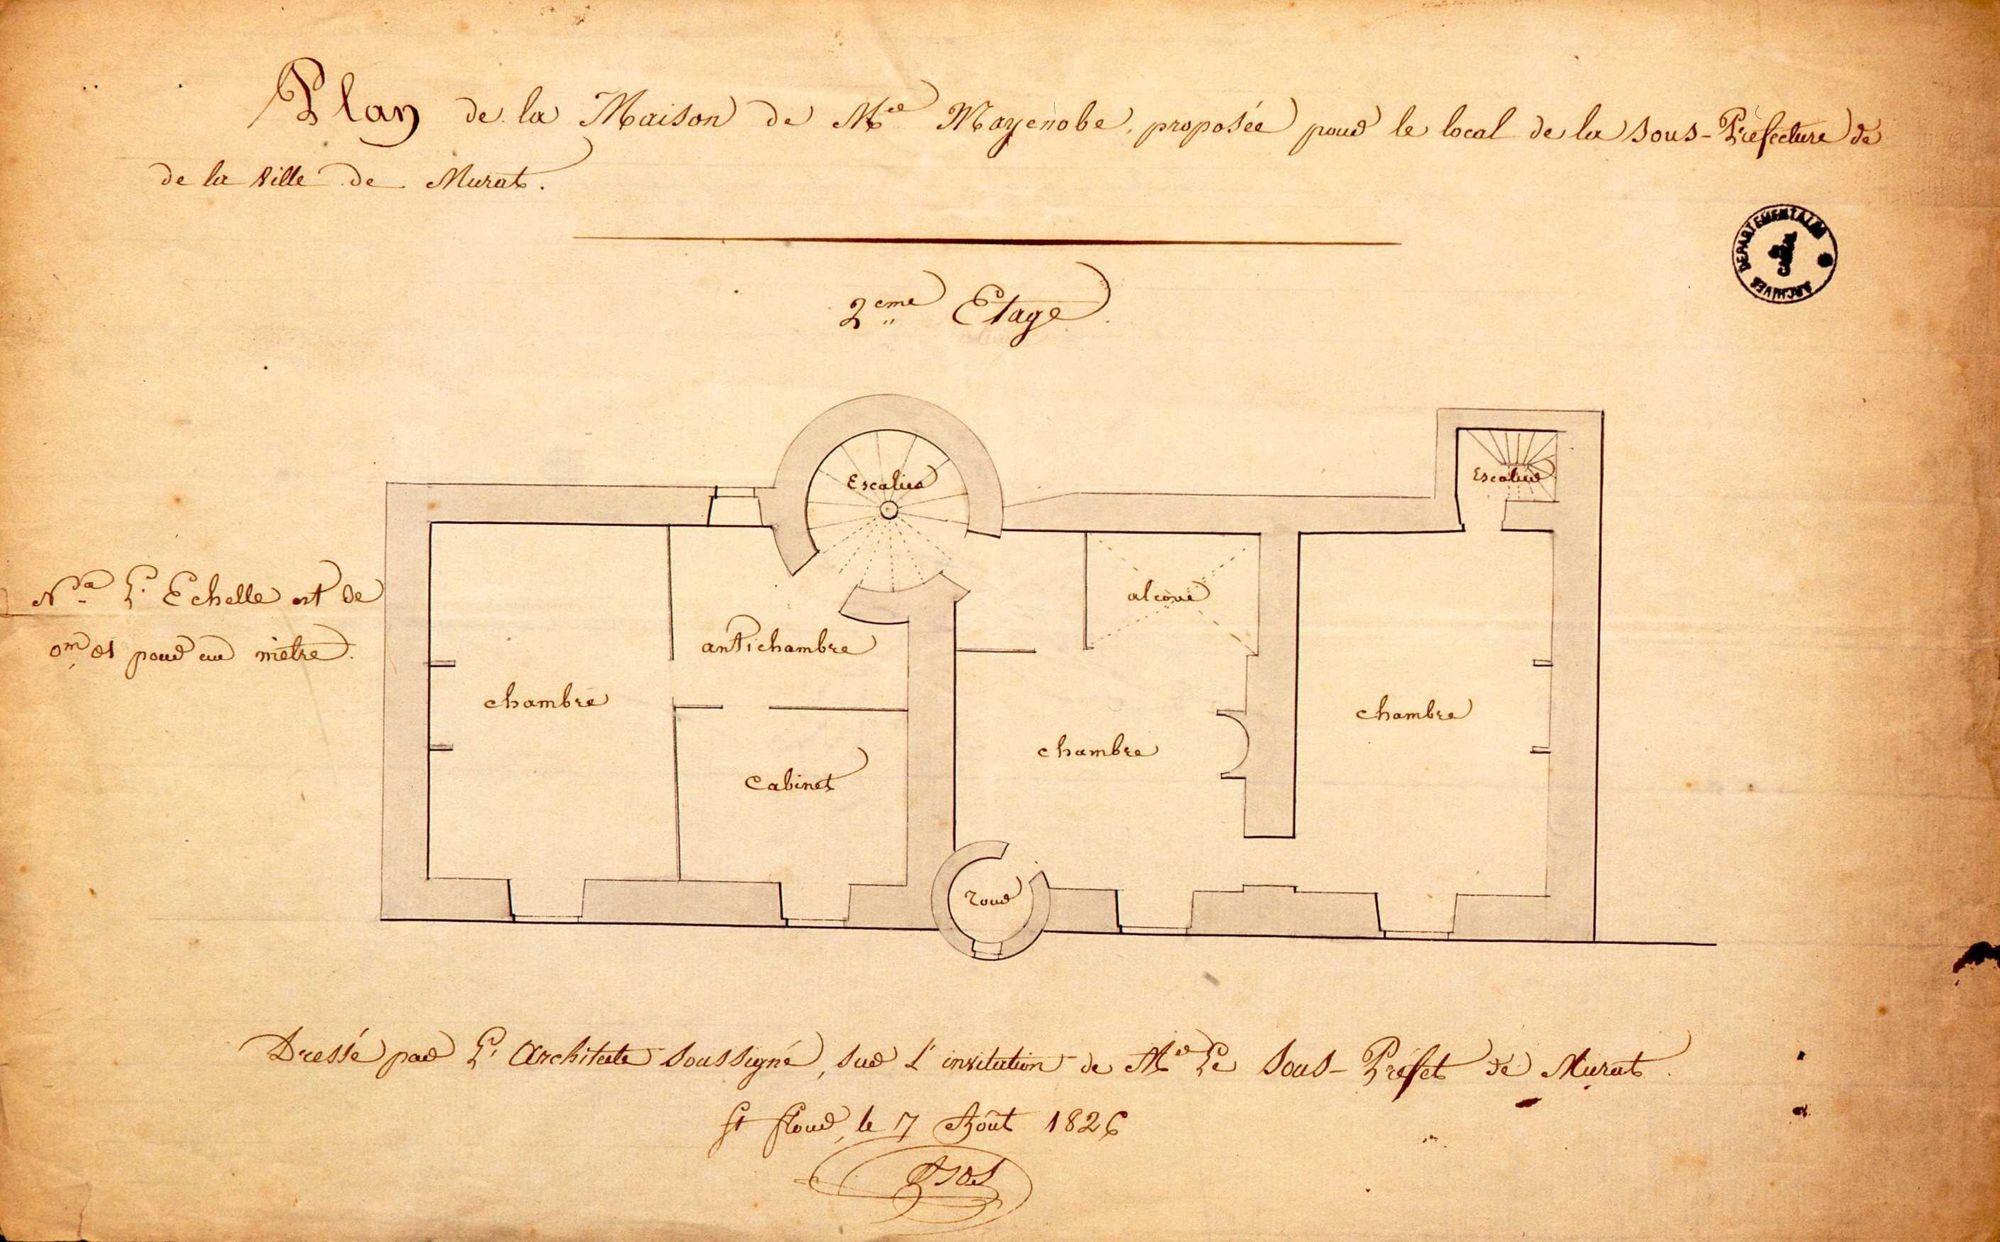 Plan de la Maison de Mr. Mayenobe, proposée pour le local de la sous-Préfecture de
de la Ville de Murat.
ARCHIVES DEPARTEMENTALES
2eme Etage
Escalier
Escalier
Na. L'Echelle est de
0m,01 pour un mètre.
alcove
antichambre
chambre
chambre
chambre
cabinet
Tour
Dressé par L'Architecte soussigné, sur L'invitation de Mr Le Sous-Préfet de Murat.
St flour, le 7 Août 1826